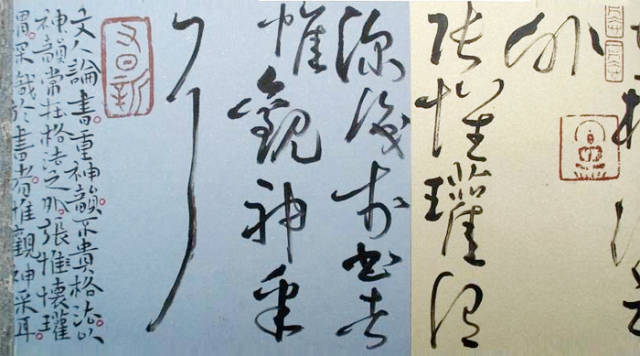 外
張懷瓘謂
深識於書者
惟觀神采
耳
又日新
文人論書。重神韻。不貴格法。以
神韻常在格法之外。張惟懷瓘
謂。深識於書者。惟觀神采耳。